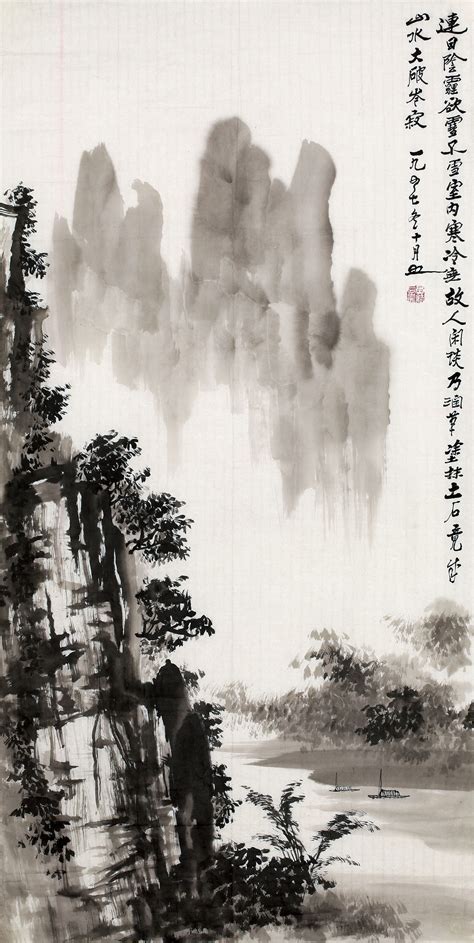 連日陰霾欲雪不雪室內寒冷無故人閑談乃草塗抹土石竟成
山水大破岑寂 一九四七冬十月